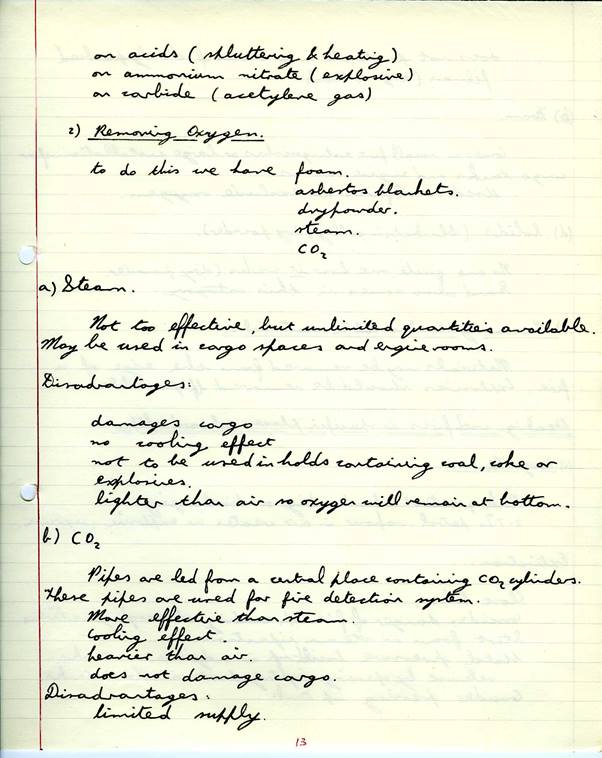 on acids (spluttering & heating)
on ammonium nitrate (explosive)
on carbide (acetylene gas)
2) Removing Oxygen.
to do this we have foam.
asbestos blankets.
dry powder.
steam.
CO2
a) Steam.
Not too effective, but unlimited quantities available.
May be used in cargo spaces and engine rooms.
Disadvantages:
damages cargo
no cooling effect
not to be used in holds containing coal, coke or
explosives.
lighter than air so oxygen will remain at bottom.
b) CO2
Pipes are led from a central place containing CO2 cylinders.
These pipes are used for fire detection system.
More effective than steam.
Cooling effect.
heavier than air.
does not damage cargo.
Disadvantages:
limited supply.
13